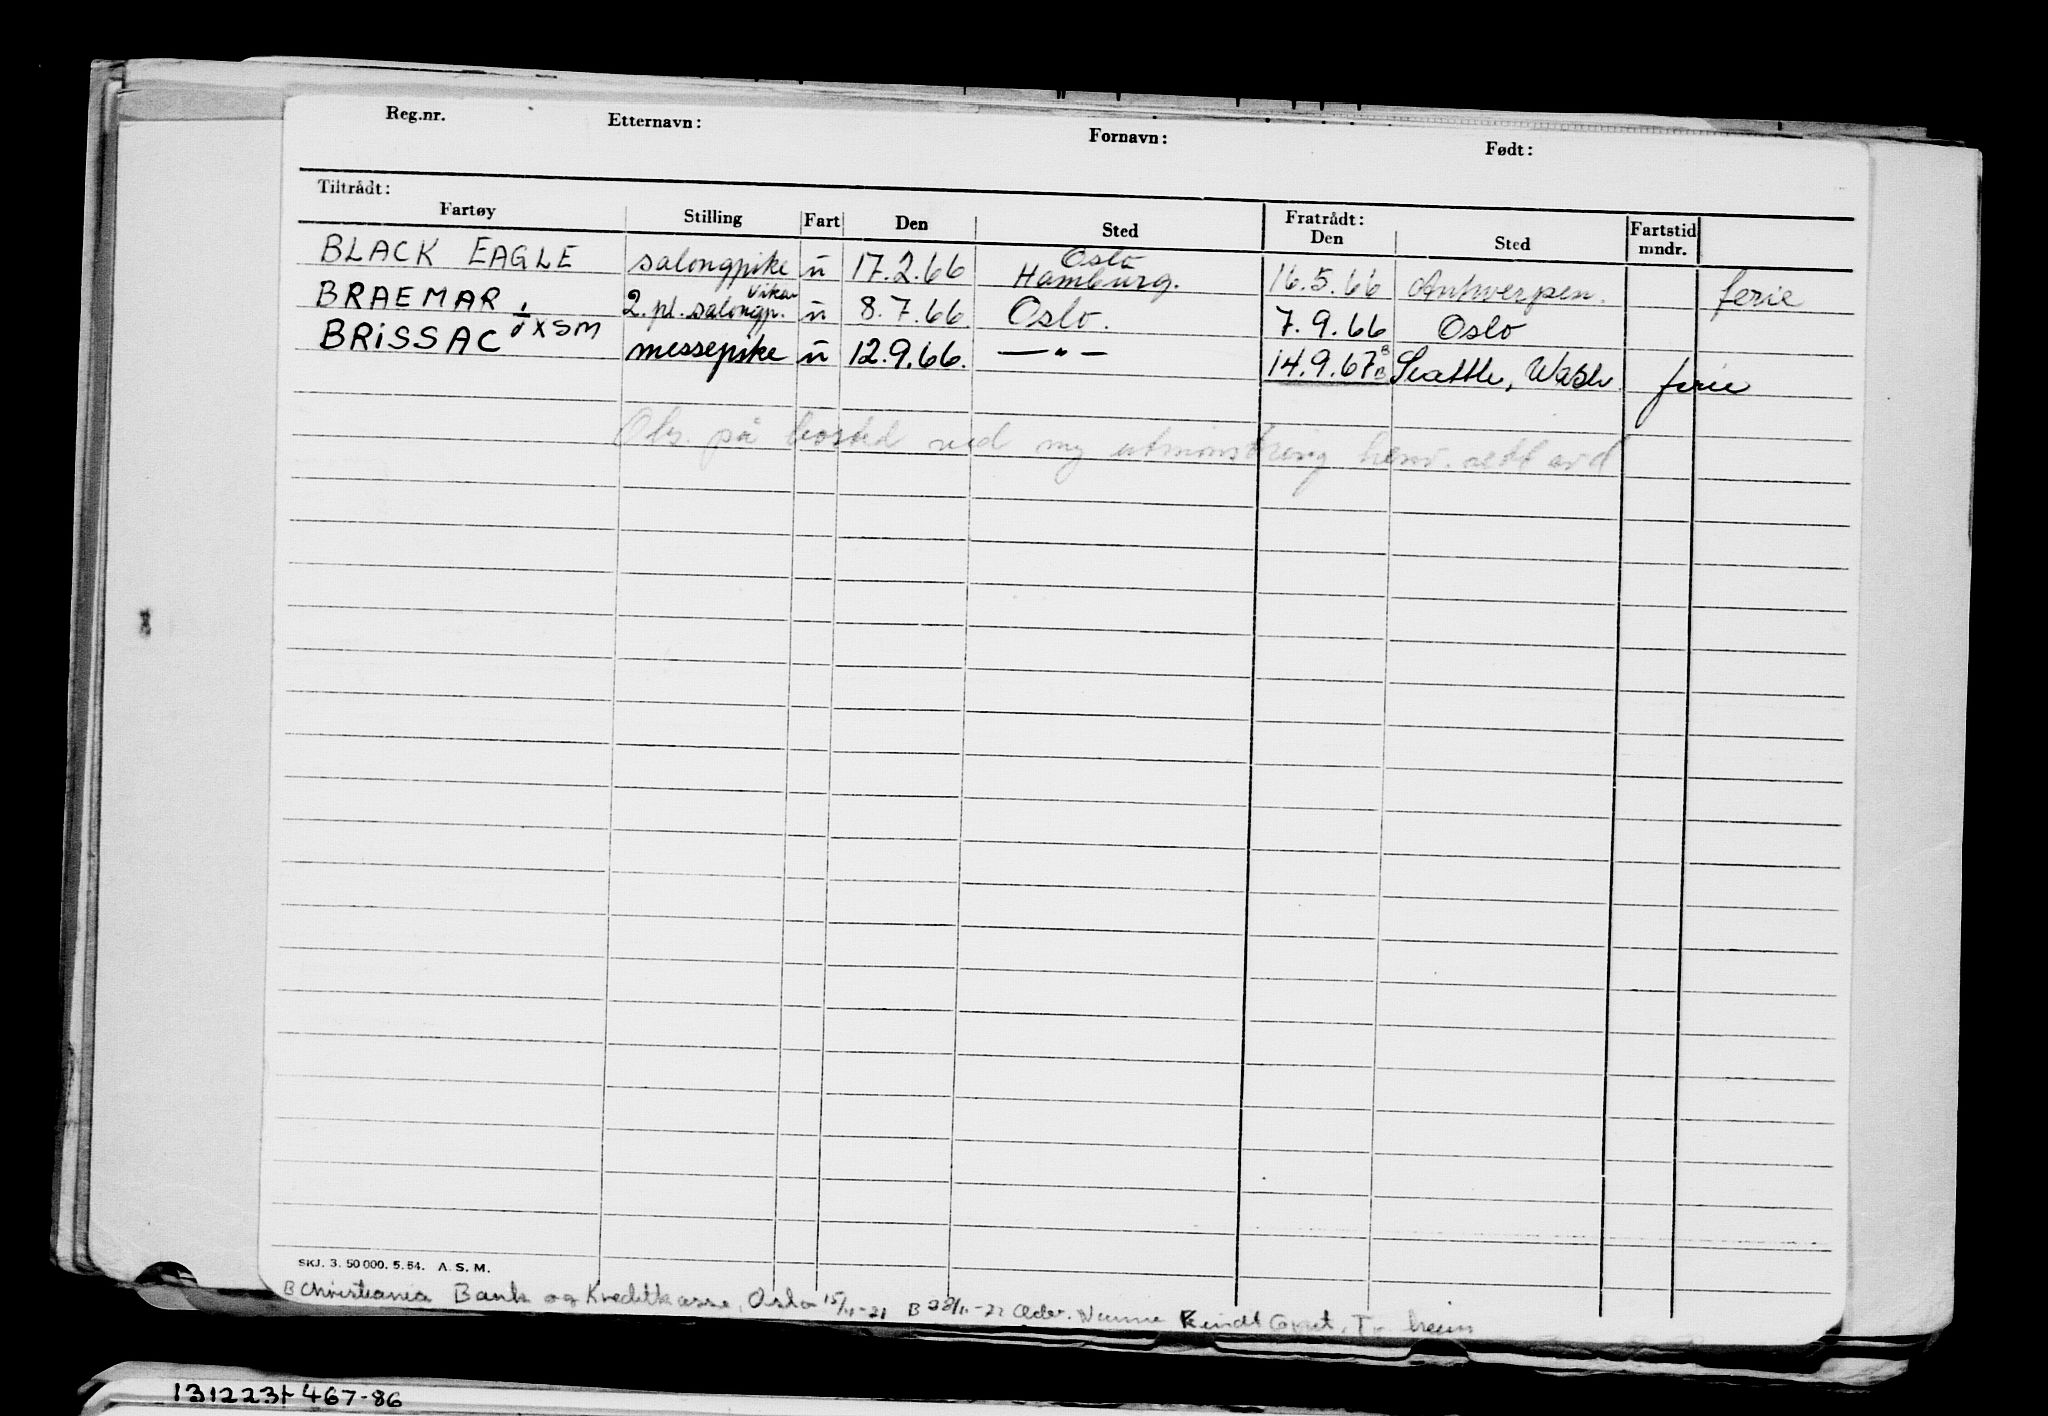 Reg.nr. Etternavn: Fornavn: Født:
Tiltrådt: Fratrådt:
Fartøy Stilling Fart Den Sted Den Sted Fartstid mndr.
BLACK EAGLE salongpike u 17.2.66 Oslo Hamburg. 16.5.66 Antwerpen. ferie
BRAEMAR 2. pl. salongp. Vikar u 8.7.66 Oslo. 7.9.66 Oslo
BRISSAC XSM messepike u 12.9.66. — " — 14.9.67 Seattle, Wash ferie
Obs. på bosted ved ny utmønstring henv.
SKJ. 3. 50 000. 5. 64. A. S. M.
B Christiania Bank og Kreditkasse, Oslo 15/11-21 B 28/11-22 Nanna
131223+ 467-86